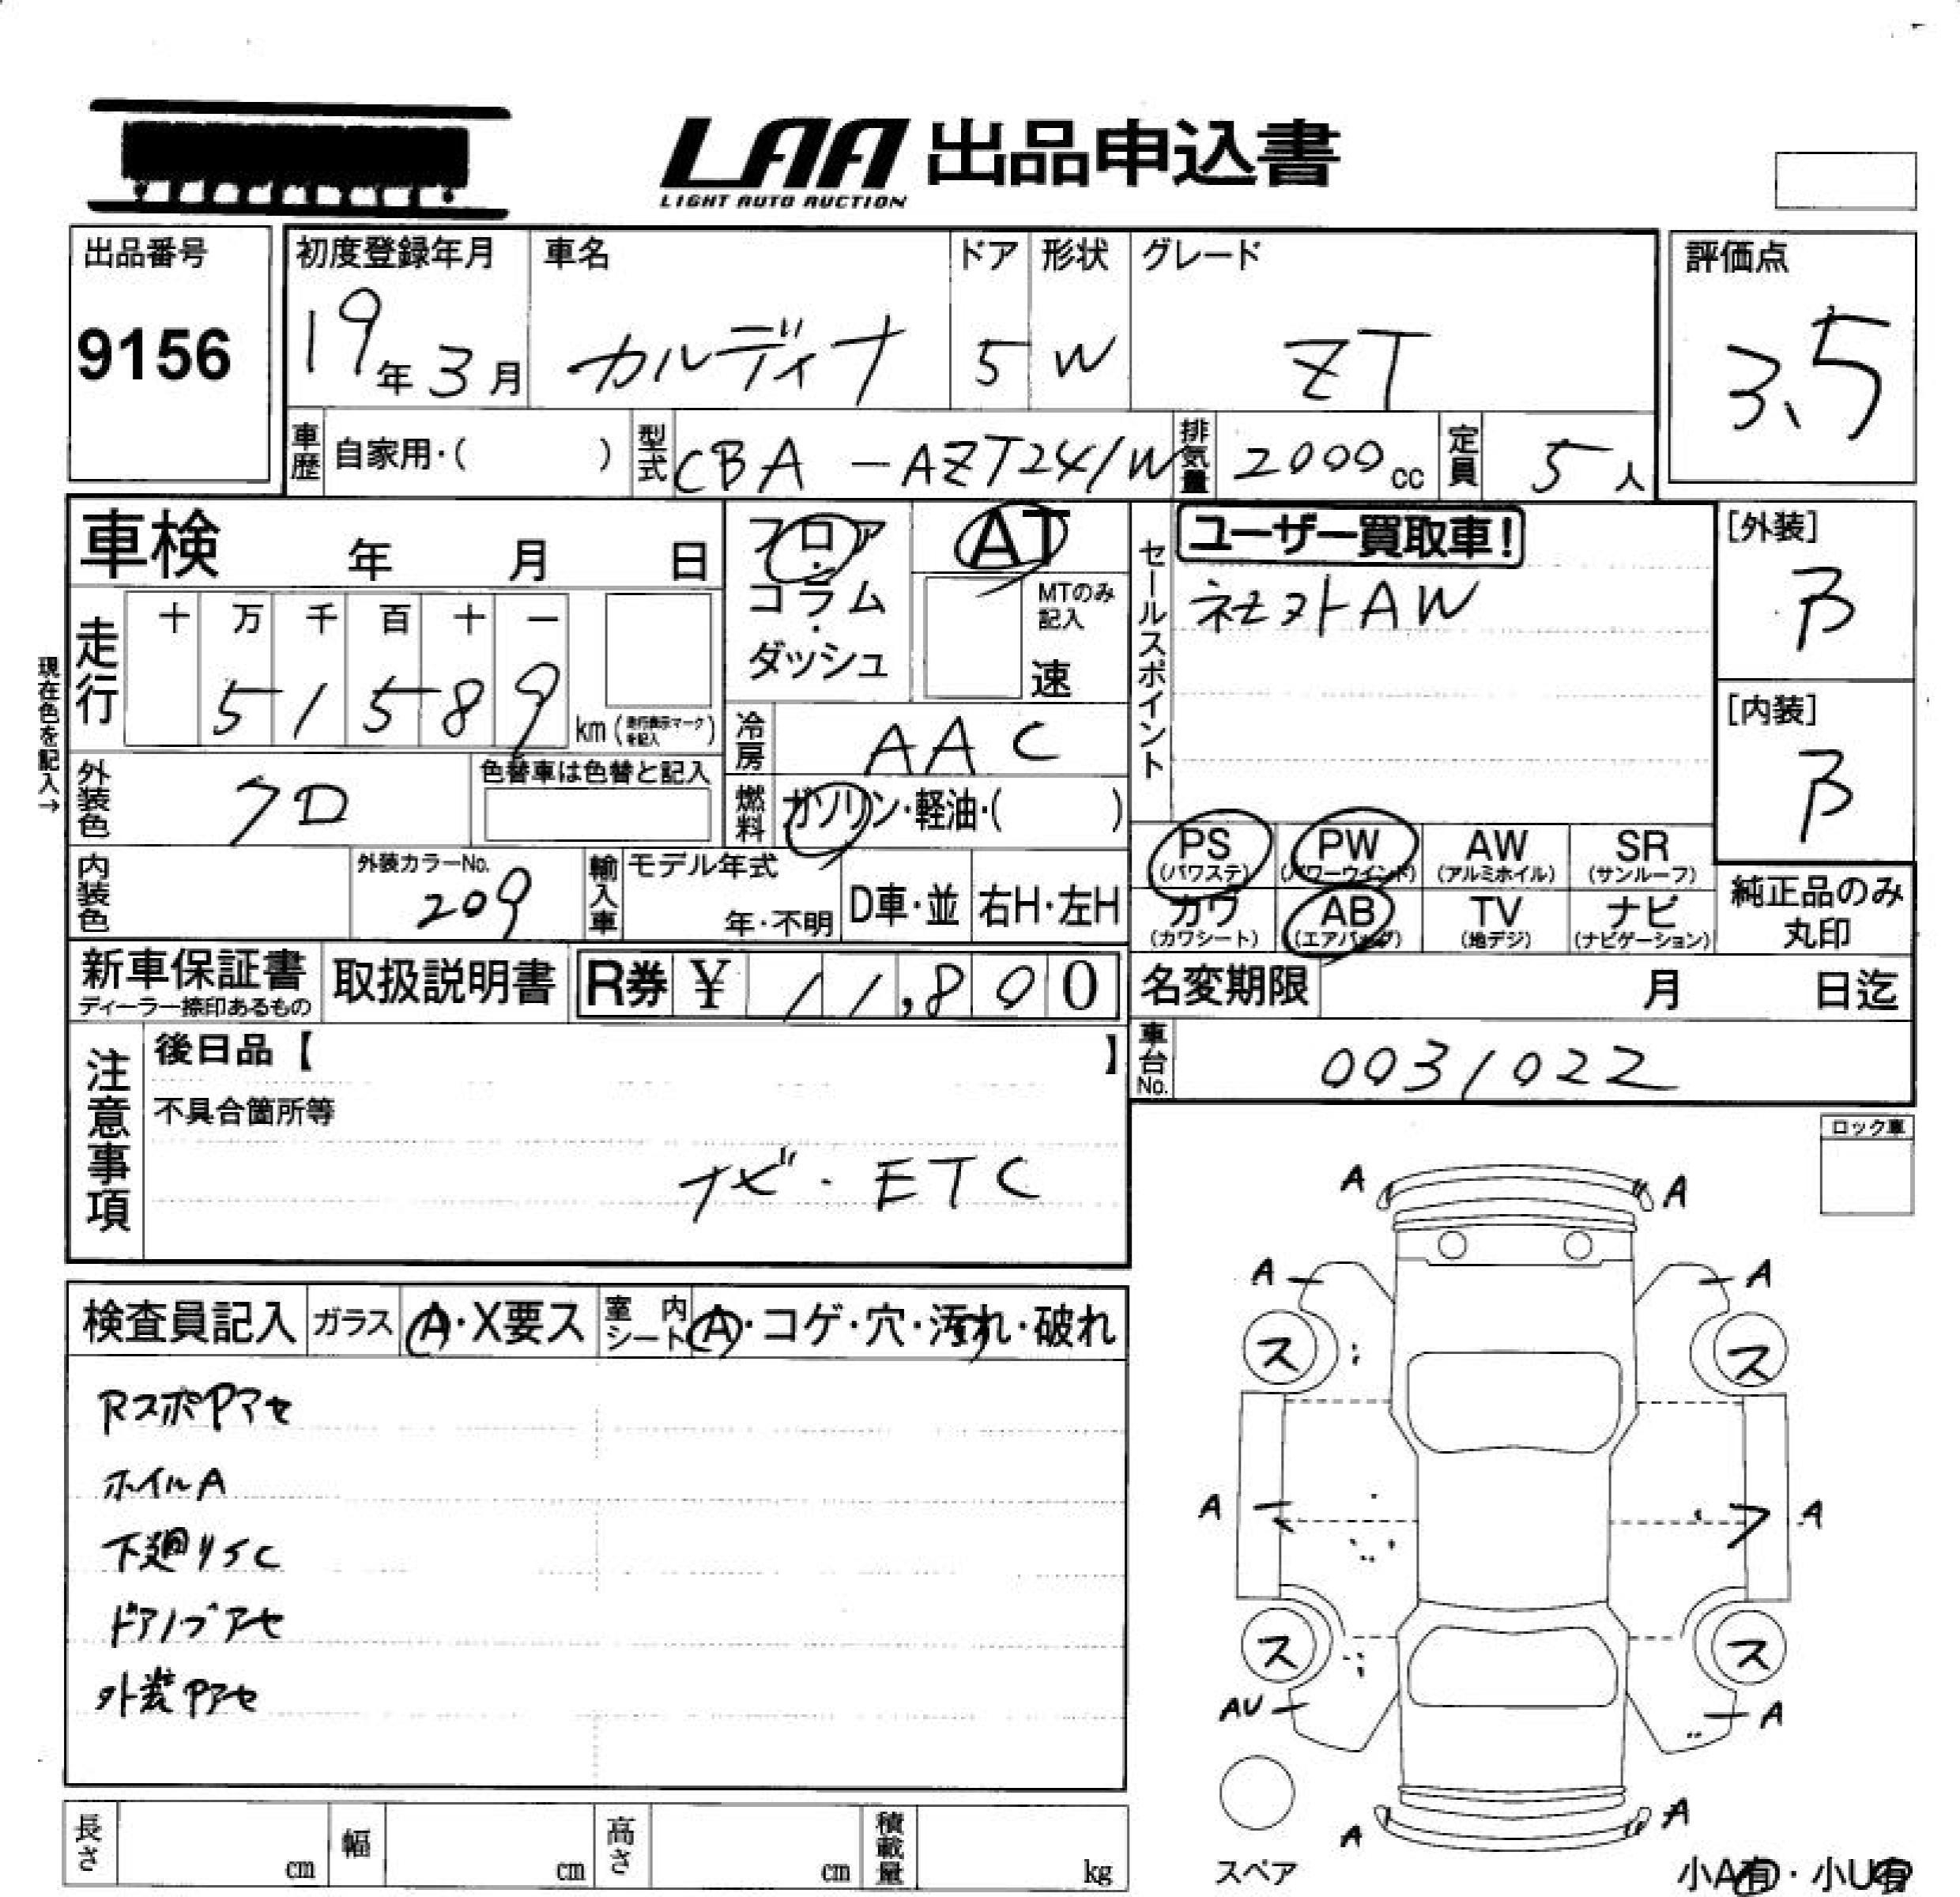 LAA 出品申込書
LIGHT AUTO AUCTION
出品番号
9156
初度登録年月
19年3月
車名
カルディナ
ドア
5
形状
W
グレード
ZT
評価点
3.5
車歴 自家用・( )
型式 CBA-AZT241W
排気量 2000cc
定員 5人
車検 年 月 日
フロア・コラム・ダッシュ
AT
MTのみ記入
速
セールスポイント
ユーザー買取車!
社外AW
[外装]
B
[内装]
B
現在色を記入→
走行
十 万 千 百 十 一
5 1 5 8 9 km (走行表示マークを記入)
冷房 AAC
外装色 クロ
色替車は色替と記入
燃料 ガソリン・軽油・( )
PS (パワステ)
PW (パワーウインド)
AW (アルミホイル)
SR (サンルーフ)
カワ (カワシート)
AB (エアバッグ)
TV (地デジ)
ナビ (ナビゲーション)
純正品のみ丸印
内装色
外装カラーNo.
209
輸入車
モデル年式
年・不明
D車・並
右H・左H
新車保証書
ディーラー捺印あるもの
取扱説明書
R券 ¥ 11,800
名変期限 月 日迄
車台No. 0031022
注意事項
後日品【 】
不具合箇所等
ナビ・ETC
ロック車
検査員記入
ガラス A・X要ス
室内シート A・コゲ・穴・汚れ・破れ
RスポPアセ
ホイルA
下廻りSC
ドアノブアセ
外装Pアセ
A A
A A
ス ス
A A
ス ス
AU A
A A
スペア
小A有・小U有
長さ cm
幅 cm
高さ cm
積載量 kg